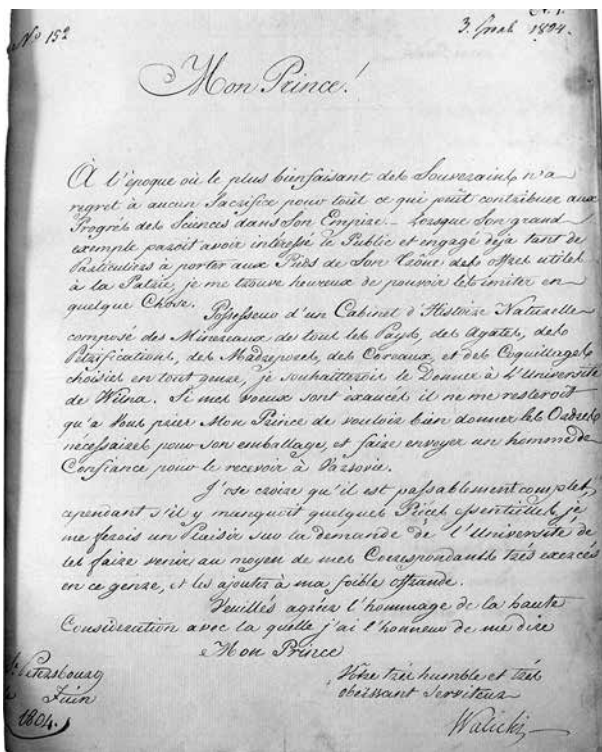 No 152
3. 1804.
Mon Prince!
À l'époque où le plus bienfaisant des Souverains n'a
regret à aucun Sacrifice pour tout ce qui peut contribuer aux
Progrès des Sciences dans Son Empire – Lorsque Son grand
exemple paroit avoir intéressé le Public et engagé deja tant de
Particuliers à porter aux Pieds de Son Trône des offres utiles
à la Patrie, je me trouve heureux de pouvoir les imiter en
quelque Chose.
Possesseur d'un Cabinet d'Histoire Naturelle
composé des Mineraux de tout les Pays, des Agates, des
Petrifications, des Madrepores, des Coraux, et des Coquillages
choisies en tout genre, je souhaitterois le Donner à L'Université
de Wilna. Si mes voeux sont exaucés il ne me resteroit
qu'a Vous prier Mon Prince de vouloir bien donner les Ordres
nécessaires pour son emballage, et faire envoyer un homme de
Confiance pour le recevoir à Varsovie.
J'ose croire qu'il est passablement complet,
cependant s'il y manquoit quelques Pièces essentielles, je
me ferois un Plaisir sur la demande de l'Université de
les faire venir au moyen de mes Correspondants très exercés
en ce genre, et les ajouter à ma foible offrande.
Veuillés agréer l'hommage de la haute
Considération avec la quelle j'ai l'honneur de me dire
Mon Prince
St Petersbourg
Juin
1804.
Vôtre très humble et très
obeissant Serviteur
Walicki